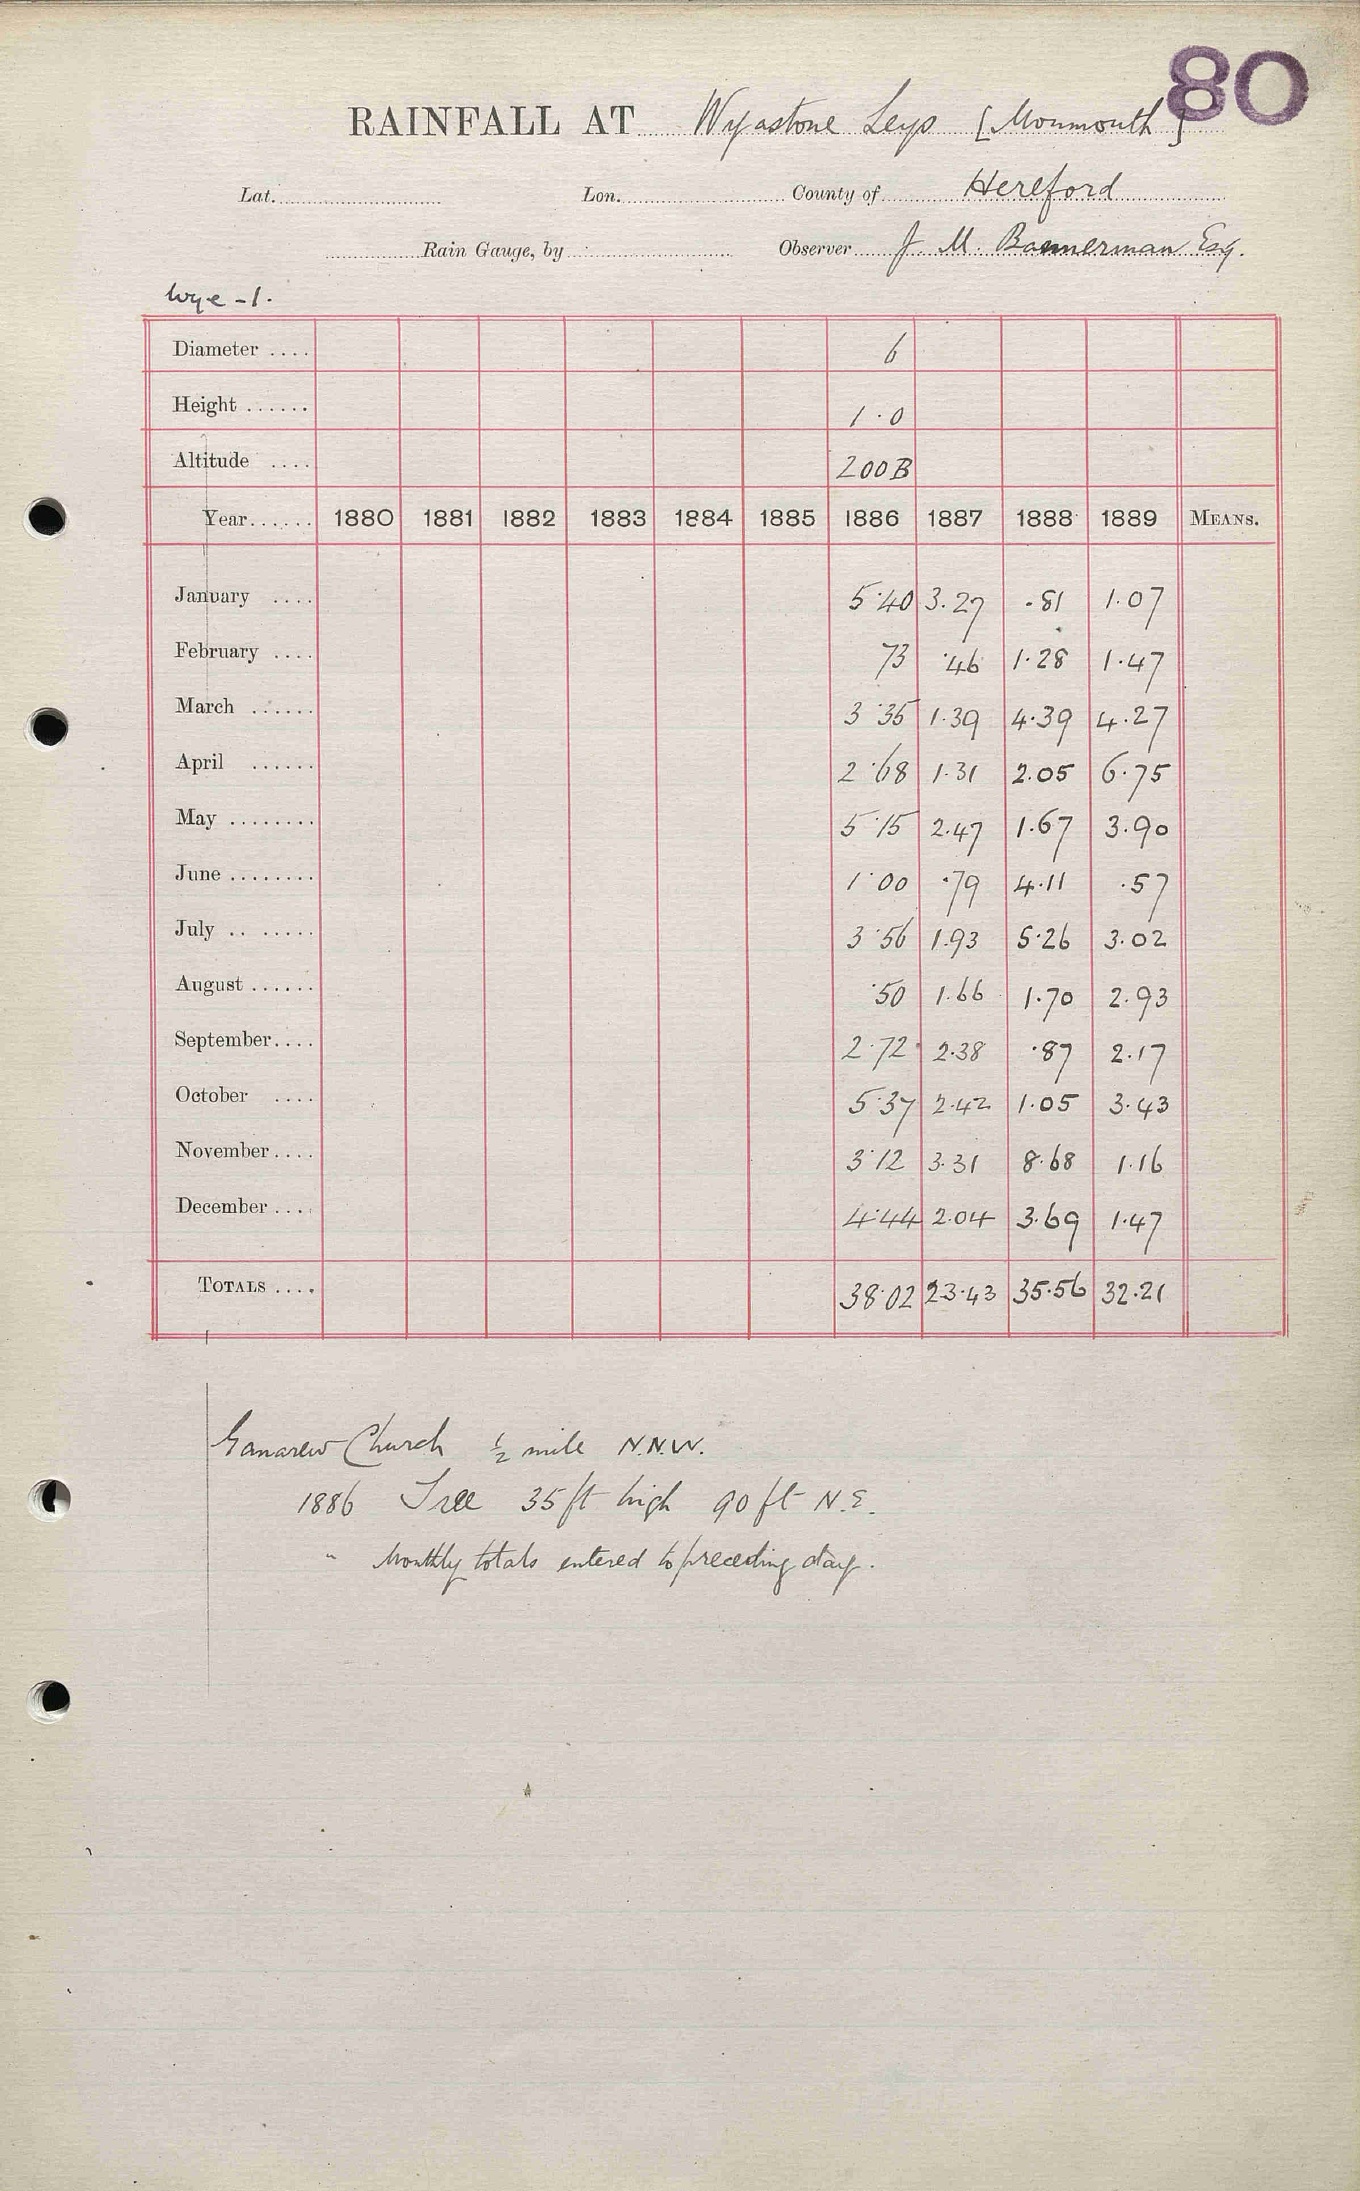 80
RAINFALL AT Wyastone Leys [Monmouth]
Lat. Lon. County of Hereford
Rain Gauge, by Observer J. M. Bannerman Esq.
Wye - 1.
Diameter .... 6
Height ...... 1.0
Altitude .... 200B
Year...... 1880 1881 1882 1883 1884 1885 1886 1887 1888 1889 MEANS.
January .... 5.40 3.27 .81 1.07
February .... 73 .46 1.28 1.47
March ...... 3.35 1.39 4.39 4.27
April ...... 2.68 1.31 2.05 6.75
May ........ 5.15 2.47 1.67 3.90
June ........ 1.00 .79 4.11 .57
July .. ..... 3.56 1.93 5.26 3.02
August ...... .50 1.66 1.70 2.93
September.... 2.72 2.38 .87 2.17
October .... 5.37 2.42 1.05 3.43
November.... 3.12 3.31 8.68 1.16
December .... 4.44 2.04 3.69 1.47
TOTALS .... 38.02 23.43 35.56 32.21
Ganarew Church ½ mile N.N.W.
1886 Tree 35 ft high 90 ft N.E.
" Monthly totals entered to preceding day.